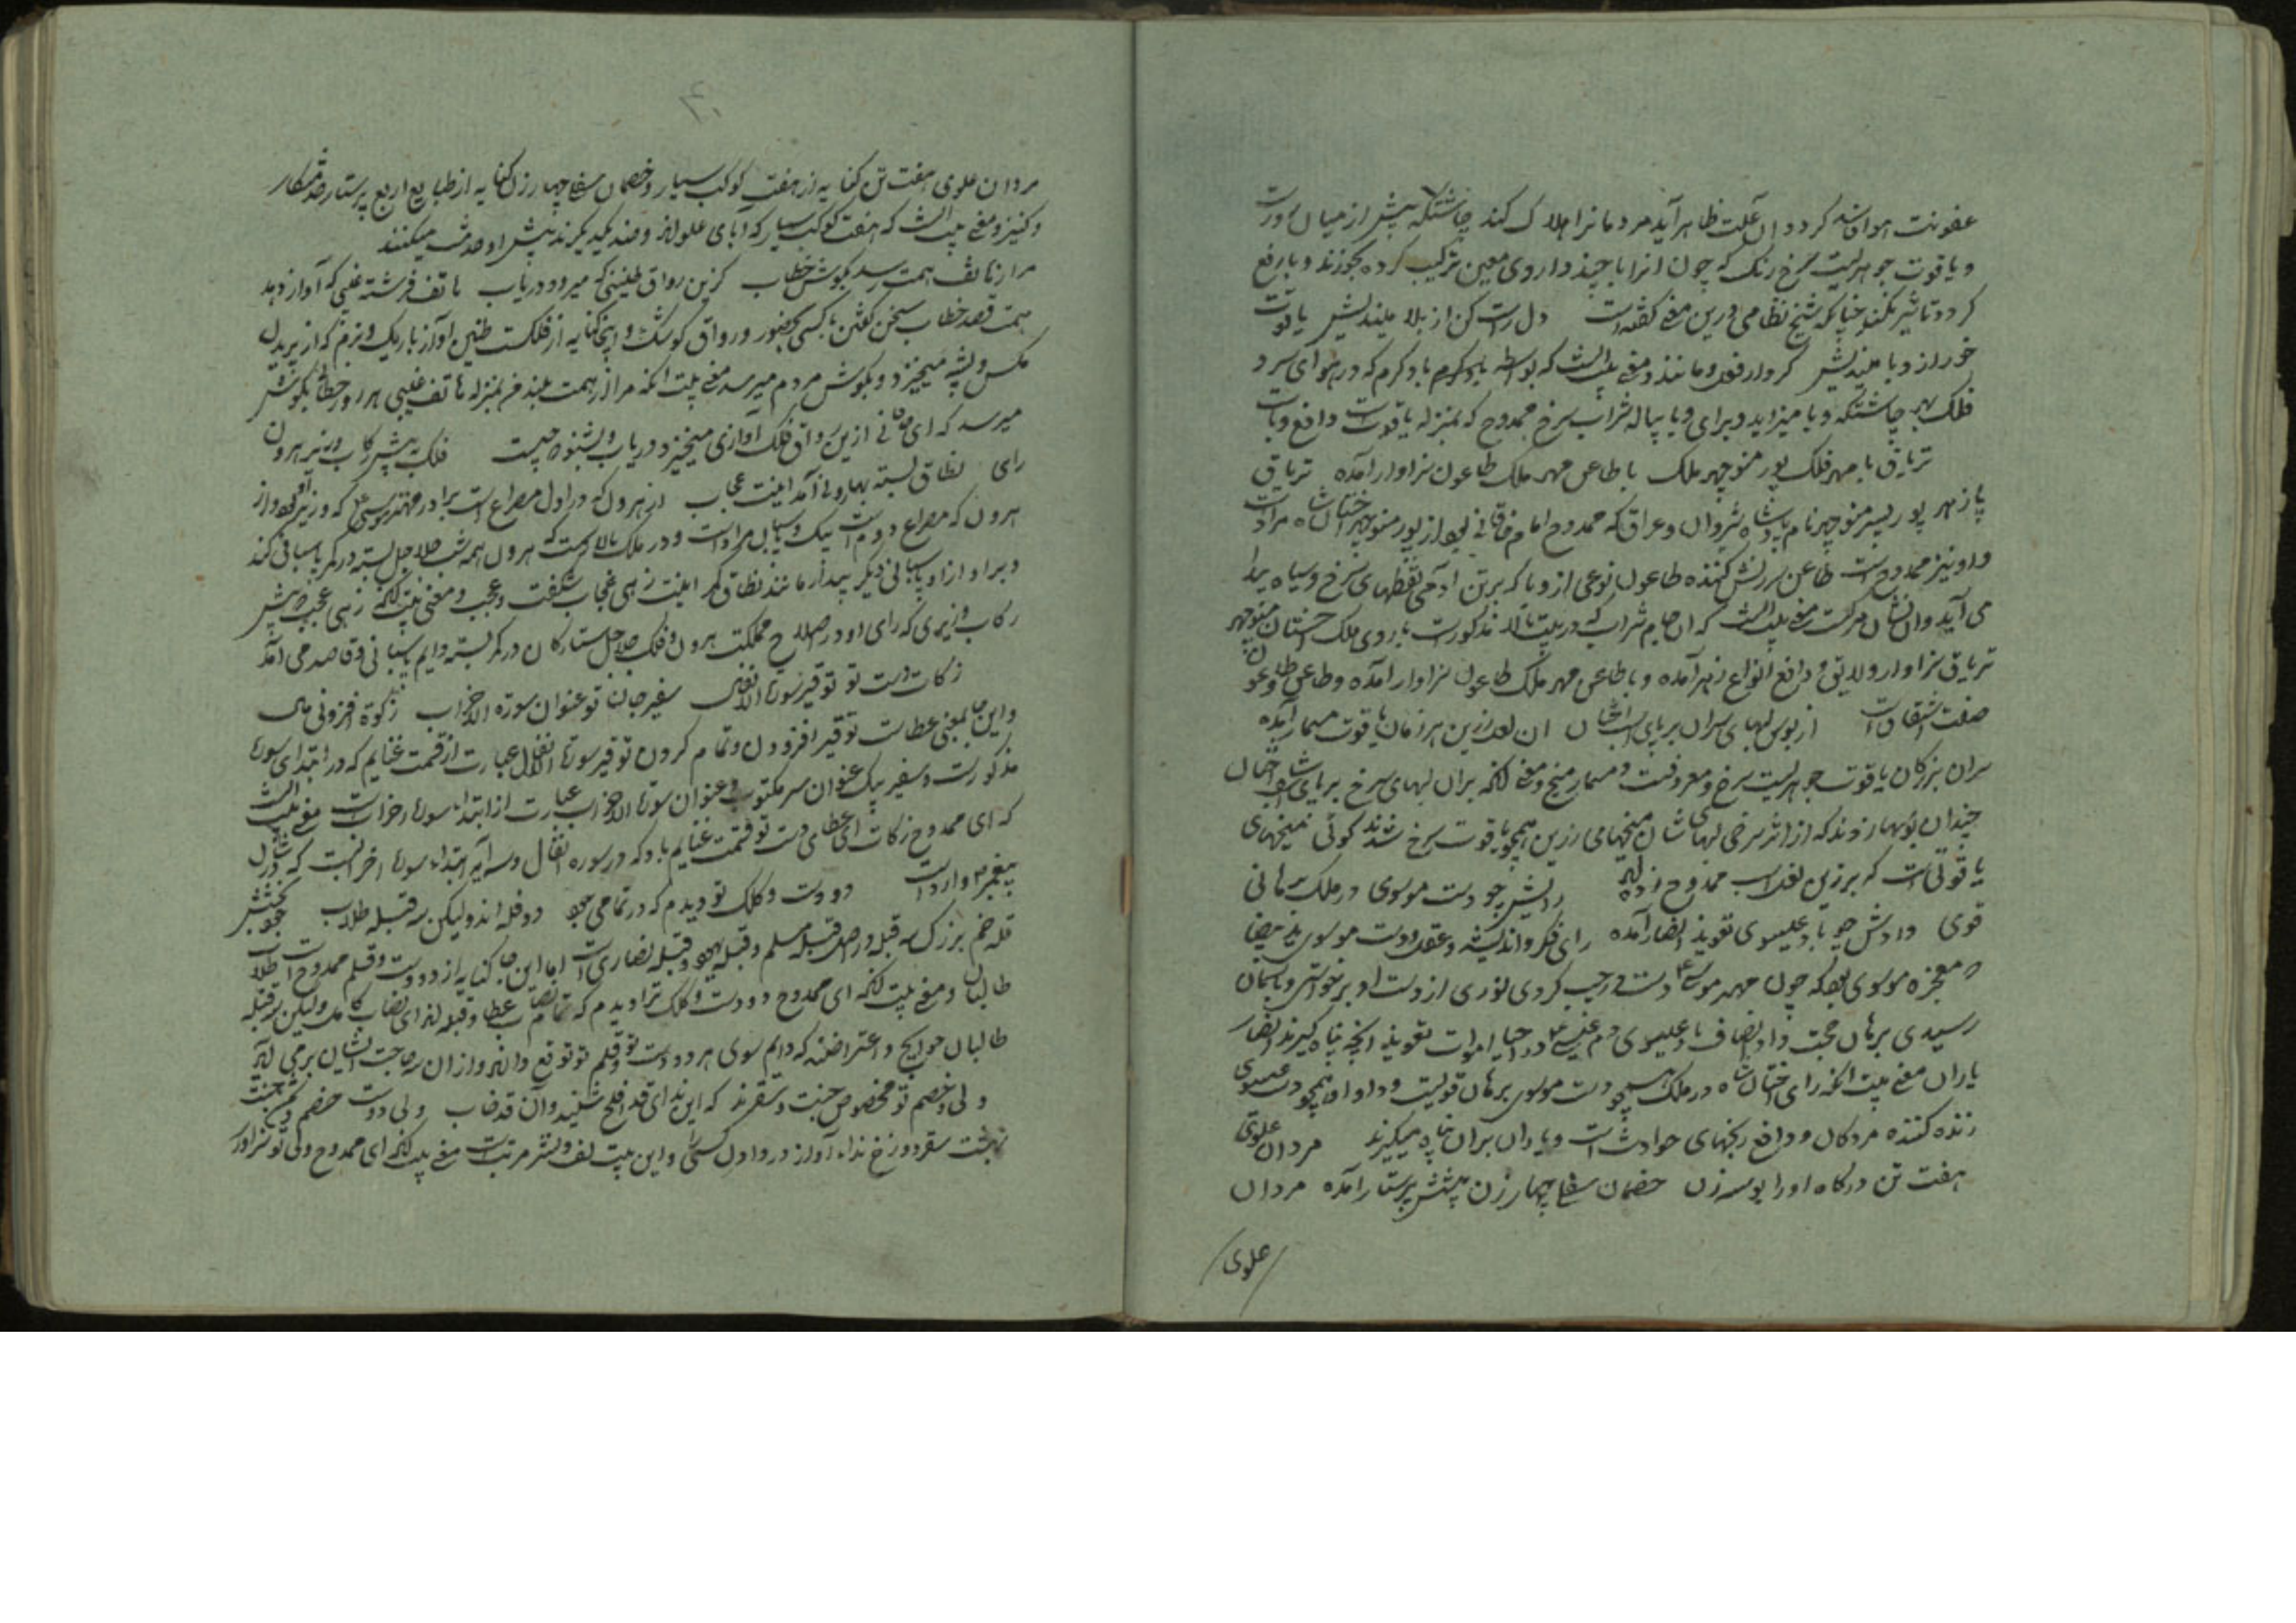 عفونت هوا فاسد کردد و ان علت ظاهر آید مردمانرا هلاک کند چاشتکه پیش از میان روزست
و یاقوت جوهریست سرخ رنک که چون انرا با چند داروی معین ترکیب کرده بخورند وبا رفع
کردد تاثیر نکند چنانکه شیخ نظامی درین معنی کفته است دل راست کن از بلا میندیش یاقوت
خور از وبا میندیش کردار فعل و مانند و معنی بیت انست که بواسطه باد کرم که در هوای سرد
فلک بهر چاشتکه وبا میزاید و برای وبا پیاله شراب سرخ ممدوح که بمنزله یاقوتست دافع وباست
تریاق با مهر فلک پور منوچهر ملک با طاعن مهر ملک طاعون سزاوار آمده تریاق
پازهر پور پسر منوچهر نام پادشاه شروان و عراق که ممدوح امام خاقانی بود از پور منوچهر اخستان شاه مرادست
و او نیز ممدوحست طاعن سرزنش کننده طاعون نوعی از وبا که برتن ادمی نقطهای سرخ و سیاه پیدا
می آید و ان نشان مرکست معنی بیت انست که ان جام شراب که در بیت بالا مذکورست با روی ملک اخستان منوچهر
تریاق سزاوار ولایق و دافع انواع زهر آمده و با طاعن مهر ملک طاعون سزاوار آمده و طاعن و طاعون
صفت اشتقاقست از بوس لبهای سران بر پای اسب اخستان ان نعل زرین هر زمان یاقوت مسمار آمده
سران بزرکان یاقوت جوهریست سرخ و معروفست و مسمار میخ و معنی انکه بران لبهای سرخ بر پای اسب شاه اخستان
چندان بوسها زدند که از اثر سرخی لبهای شان میخهای زرین همچو یاقوت سرخ شدند کوئی میخهای
یاقوتی است که بر زین نعل اسب ممدوح زده اند رایش چو دست موسوی در ملک برهانی
قوی دادش چو باد عیسوی تعویذ انصار آمده رای فکر و اندیشه و عقل و دست موسوی ید بیضا
معجزه موسوی بود که چون مهتر موسی ع دست در جیب کردی نوری از دست او بر خواستی و باسمان
رسیدی برهان حجت و داد انصاف باد عیسوی دم عیسی ع در احیا اموات تعویذ انچه پناه کیرند انصار
یاران معنی بیت انکه رای اخستان شاه در ملک همچو دست موسوی برهان قویست و داد او همچو دم عیسوی
زنده کننده مردکان و دافع رنجهای حوادث است و یاران بران پناه میکیرند مردان علوی
هفت تن درکاه او را بوسه زن خصمان سفلی چهار زن پیشش پرستار آمده مردان
علوی
۴۰
مردان علوی هفت تن کنایه از هفت کوکب سیار و خصمان سفلی چهار زن کنایه از طبایع اربع پرستار خدمتکار
و کنیز و معنی بیت انست که هفت کوکب سیار که آبای علو اند و ضد یکدیکرند پیش او خدمت میکنند
مرا زهاتف همت رسد بکوش خطاب کزین رواق طنینی که میرود دریاب هاتف فرشته غیبی که آواز دهد
همت قصد خطاب سخن کفتن با کسی بحضور و رواق کوشک و اینجا کنایه از فلکست طنین اواز باریک و نرم که از پریدن
مکس و پشه میخیزد و بکوش مردم میرسد معنی بیت انکه مرا از همت بلند من بمنزله هاتف غیبی هر روز خطاب بکوش
میرسد که ای خاقانی ازین رواق فلک آوازی میخیزد دریاب و بشنو که چیست فلک به پیش رکاب وزیر هرون
رای نطاق بسته بهارونی آمد اینت عجاب از هرون که در اول مصراع است برادر مهتر موسی ع که وزیر او بود و از
هرون که مصراع دوم است پیک و پاسبان مرادست و در ملک بالا دست که هرون همه شب جلاجل بسته در کمر پاسبانی کند
و برادر از او پاسبانی دیکر بیدار ماند نطاق کمر اینت زهی عجاب شکفت و عجب و معنی بیت انکه زهی عجب که پیش
رکاب وزیری که رای او در صلاح مملکت هرون و فلک جلاجل ستارکان در کمر بسته دایم پاسبانی و قاصدمی آمد
زکات دست تو توقیر سورة الانفال سفیر جان تو عنوان سورة الاحزاب زکوة افزونی مال
و این جا بمعنی عطاست توقیر افزودن و تمام کردن توقیر سورة الانفال عبارت از قسمت غنایم که در ابتدای سورة
مذکورست و سفیر پیک عنوان سر مکتوب و عنوان سورة الاحزاب عبارت از ابتداء سورة احزاب است معنی بیت انست
که ای ممدوح زکات ای عطای دست تو قسمت غنایم باد که در سوره انفال و سرآیه ابتداء سورة احزابست که در شان
پیغمبر م وارد است دو دست و کلک تو دیدم که در تمامی جود دو قله اند ولیکن سه قبله طلاب جود بخشش
قله خم بزرک سه قبله در اصل قبله مسلم و قبله یهود و قبله نصاری است اما این جا کنایه از دو دست و قلم ممدوح است طلاب
طالبان و معنی بیت انکه ای ممدوح دو دست و کلک ترا دیدم که تمام نصاب عطا دو قله اند ای نصاب کامل ولیکن سه قبله
طالبان حوایج و اعتراضنه که دایم سوی هر دو دست تو و قلم تو توقع دارند و ازان سه حاجت ایشان برمی آید
ولی و خصم تو مخصوص جنت و سقرند که این ندای قد افلح شنید و ان قد خاب ولی دوست خصم دشمن جنت
بهشت سقر دوزخ ندا آواز در دادن کسی را و این بیت لف و نشر مرتب است معنی بیت انکه ای ممدوح ولی تو سزاوار